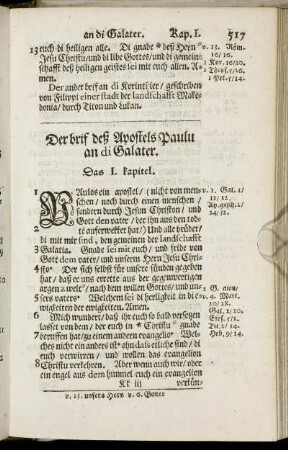 an di Galater. Kap. I. 517
13 euch di heiligen alle. Di gnade deß Hern
Jesu Christi/und di libe Gottes/und di gemein-
schafft deß heiligen geistes sei mit euch allen. A-
men.
Der ander brif an di Korinthier/geschriben
von Filippi einer stadt der landschafft Make-
donia/durch Titon und Lukan.
v. 13. Röm.
16/16.
1 Kor. 16/20.
1 Thess. 5/26.
1 Pet. 5/14.
Der brif deß Apostels Paulu
an di Galater.
Das I. kapitel.
1 PAulos ein apostel/(nicht von men-
schen/noch durch einen menschen/
sondern durch Jesum Christon/und
Gott den vater/der ihn aus den tod-
2 te auferwekket hat) Und alle brüder/
di mit mir sind/den gemeinen der landschafft
3 Galatia. Gnade sei mit euch/und fride von
Gott dem vater/und unserm Hern Jesu Chri-
4 sto* Der sich selbst für unsere sünden gegeben
hat/daß er uns errette aus der gegenwertigen
argen welt/nach dem willen Gottes/und un-
5 sers vaters* Welchem sei di herligkeit in di e-
wigkeiten der ewigkeiten. Amen.
6 Mich wundert/daß ihr euch so bald versetzen
lasset von dem/der euch in *Christi* gnade
7 beruffen hat/zu einem andern evangelio* Wel-
ches nicht ein anders ist* ohn daß etliche sind/di
euch verwirren/und wollen das evangelion
8 Christi verkehren. Aber wenn auch wir/oder
ein engel aus dem himmel euch ein evangelion
Kk iii verkün-
v. 1. Gal. 1/
11/12.
Ap. gesch. 2/
24/32.
v. 4. Matt.
20/28.
Gal. 2/20.
Efes. 5/2.
Tit. 2/14.
Heb. 9/14.
v. 13. unsers Hern v. 6. Gottes